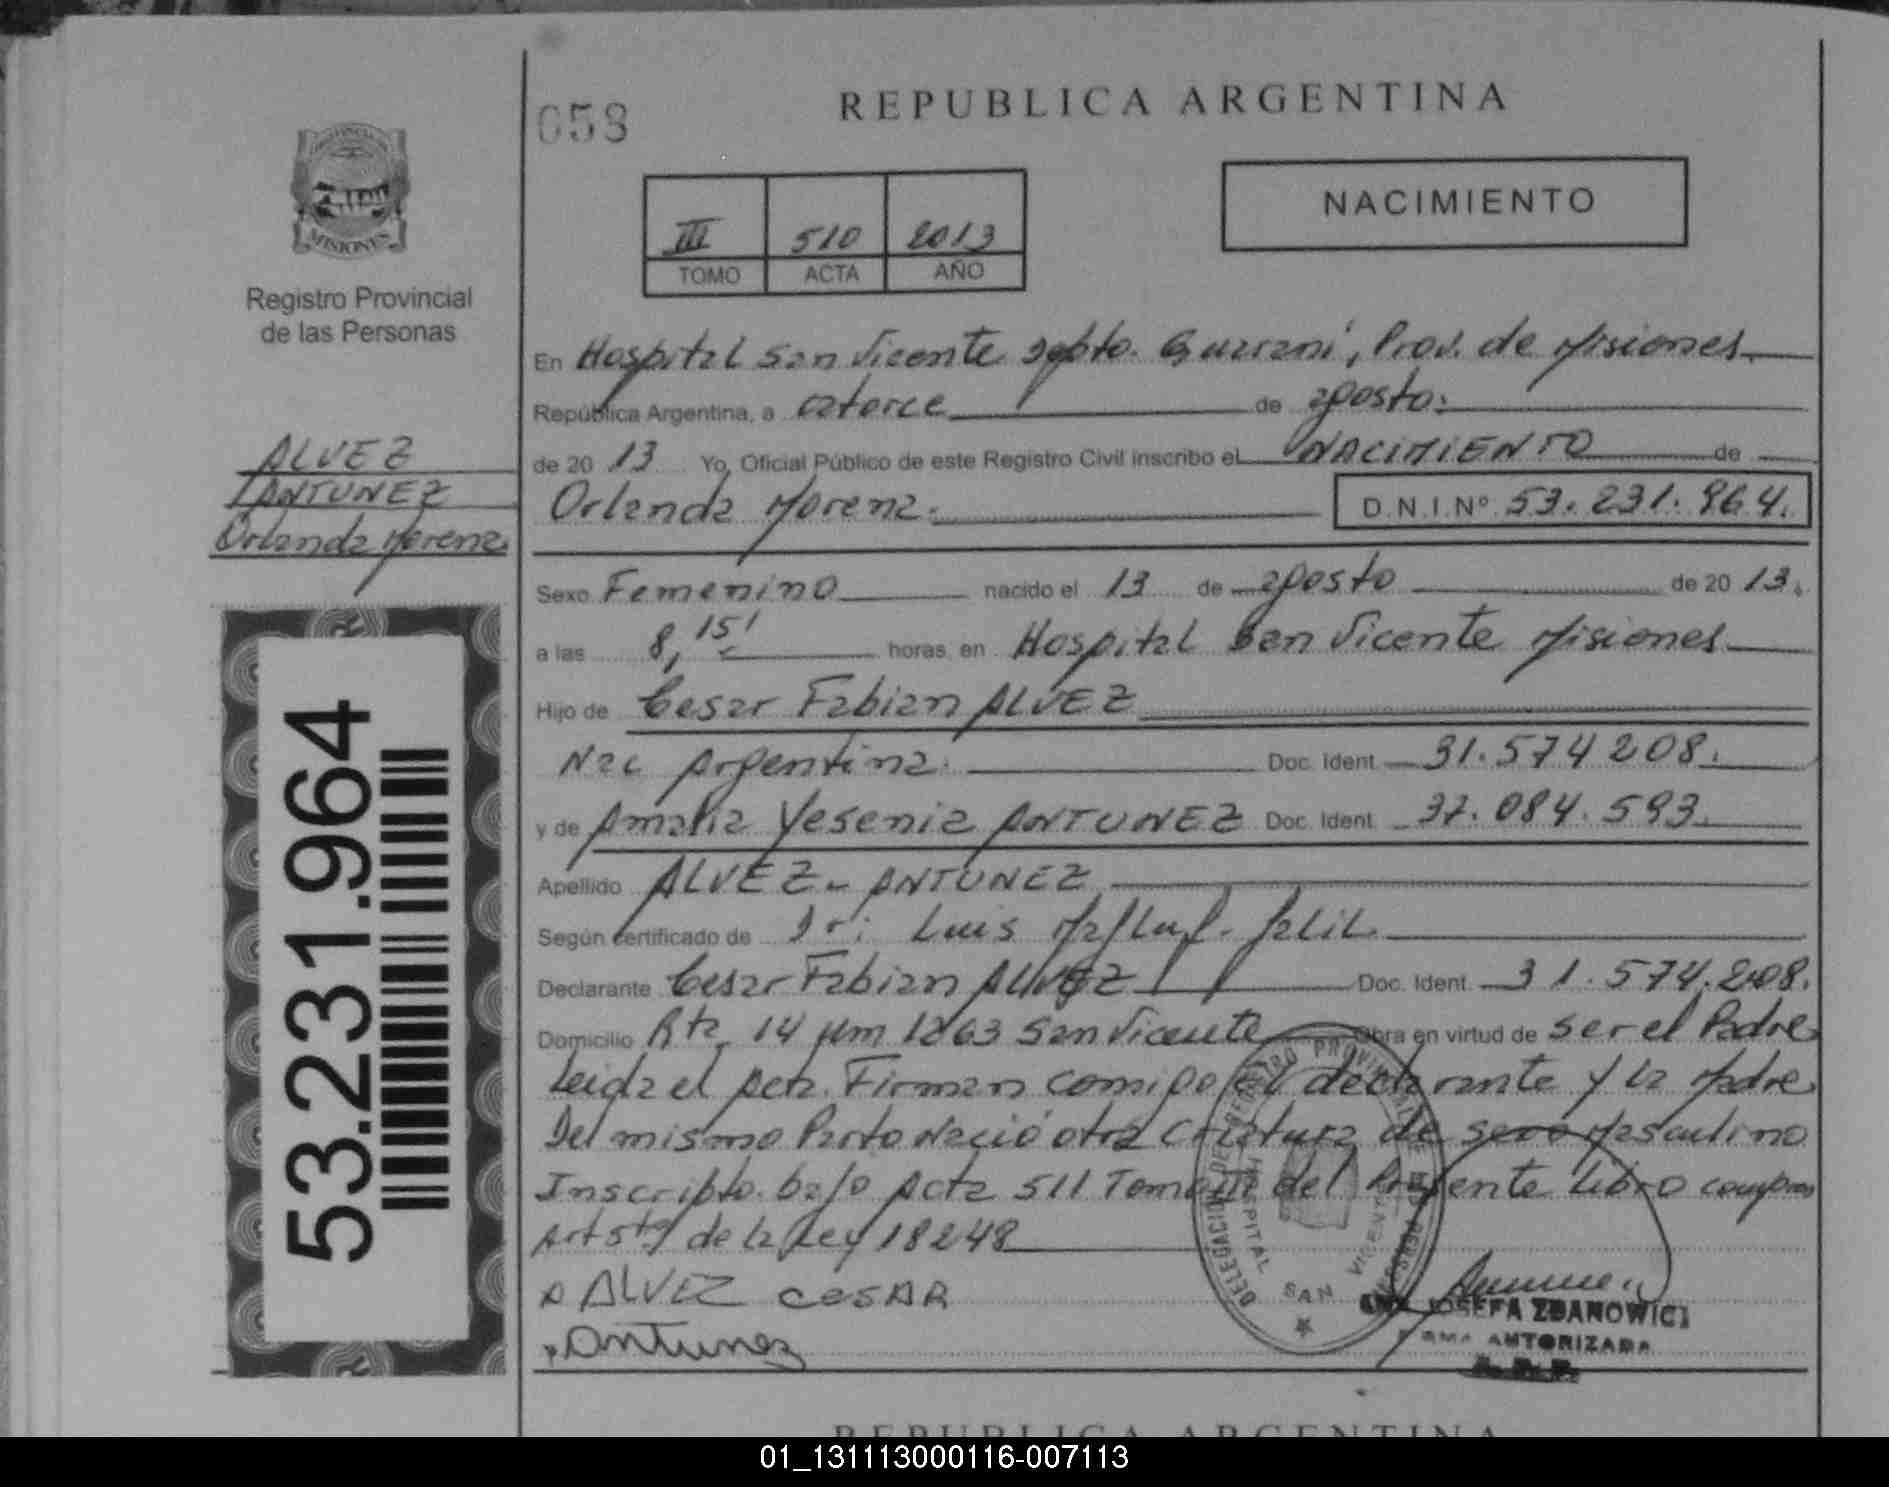 058
REPUBLICA ARGENTINA
NACIMIENTO
III 510 2013
TOMO ACTA AÑO
MISIONES
Registro Provincial
de las Personas
ALVEZ
ANTUNEZ
Orlanda Morena
53.231.964
En Hospital San Vicente Dpto. Guarani, Prov. de Misiones
República Argentina, a catorce de agosto
de 20 13 Yo, Oficial Público de este Registro Civil inscribo el NACIMIENTO de
Orlanda Morena. D.N.I.Nº 53.231.964.
Sexo Femenino nacido el 13 de agosto de 20 13.
a las 8,15' horas, en Hospital San Vicente Misiones
Hijo de Cesar Fabian ALVEZ
Nac Argentina. Doc. Ident. 31.574 208.
y de Amalia Yesenia ANTUNEZ Doc. Ident. 37.084.593.
Apellido ALVEZ - ANTUNEZ
Según certificado de Dr: Luis Jalil.
Declarante Cesar Fabian ALVEZ Doc. Ident. 31.574.208.
Domicilio Rta 14 Km 1263 San Vicente Obra en virtud de ser el Padre
Leida el acta. Firman comigo el declarante y la Madre
Del mismo Parto Nació otra criatura de sexo Masculino
Inscripto. bajo Acta 511 Tomo III del Presente Libro
Art 5to de la Ley 18248
ALVEZ CESAR
Antunez
DELEGACION DEL REGISTRO PROVINCIAL DE LAS PERSONAS
HOSPITAL SAN VICENTE
JOSEFA ZDANOWICZ
FIRMA AUTORIZADA
REPUBLICA ARGENTINA
01_131113000116-007113